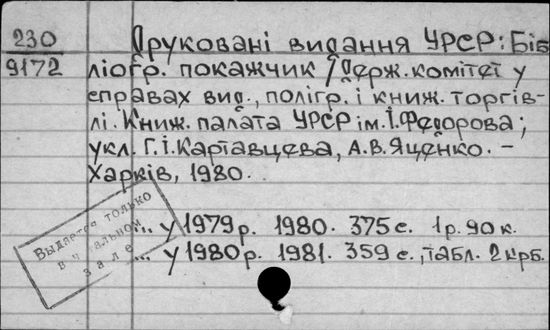 230
9172
Друковані видання УРСР: Біб
ліогр. покажчик / Держ. комітет у
справах вид., полігр. і книж. торгів-
лі. Книж. палата УРСР ім. І. Федорова;
укл. Г.І. Картавцева, А.В. Яценко. –
Харків, 1980.
... у 1979 р. 1980. 375 с. 1 р. 90 к.
... у 1980 р. 1981. 359 с., табл. 2 крб.
Выдается только
в читальном
зале